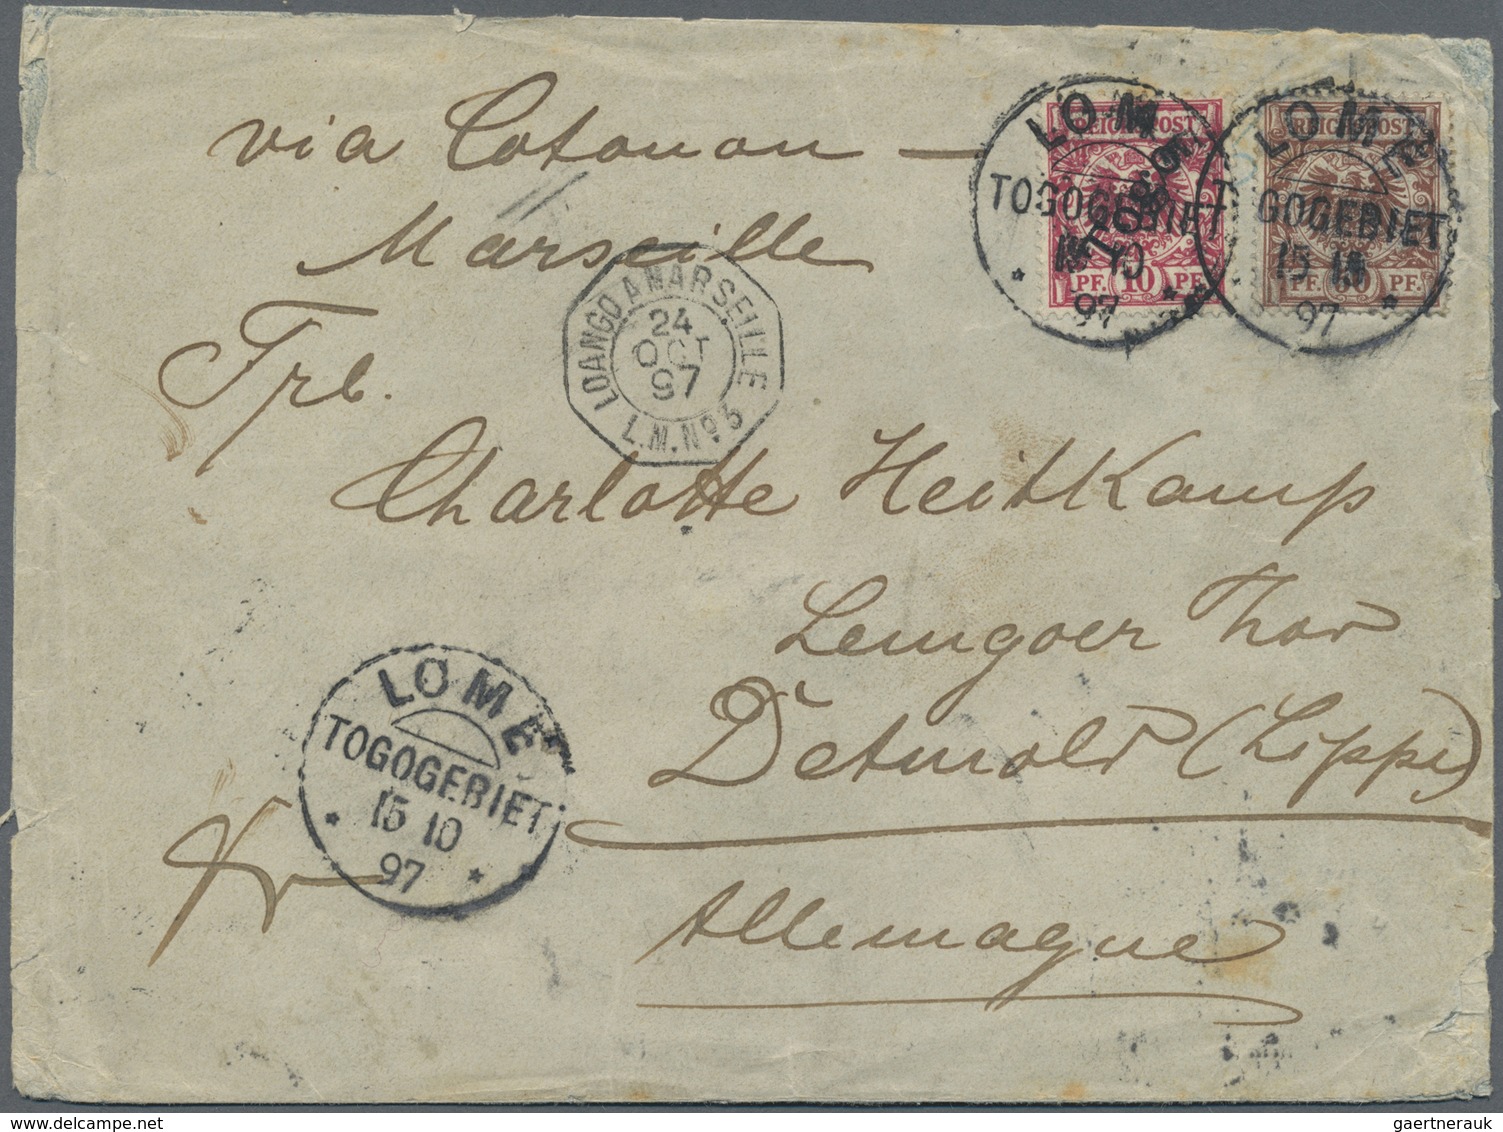 via Cotonou —
Marseille
Frl.
Charlotte Heitkamp
Lemgoer Thor
Detmold (Lippe)
Allemagne
REICHSPOST
PF. 10 PF.
REICHSPOST
PF. 50 PF.
LOME
TOGOGEBIET
15 10
97
LOME
TOGOGEBIET
15 10
97
LOANGO A MARSEILLE
24
OCT
97
L.M. Nº 5
LOME
TOGOGEBIET
15 10
97
gaertnerauk / Delcampe.net